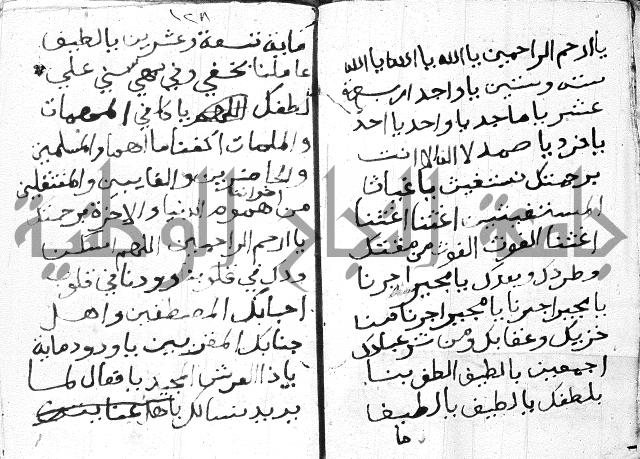 يا ارحم الراحمين يا الله يا الله يا الله
ستة وستين يا واحد اربعة
عشر يا ماجد يا واحد يا احد
يا فرد يا صمد لا اله الا انت
برحمتك نستغيث يا غياث
المستغيثين اغثنا اغثنا
اغثنا الغوث الغوث من مقتك
وطردك وبعدك يا مجير اجرنا
يا مجير اجرنا يا مجير اجرنا من
خزيك وعقابك ومن شر عبادك
اجمعين يا لطيف الطف بنا
بلطفك يا لطيف يا لطيف
ما
١٢٨
ماية تسعة وعشرين يا لطيف
عاملنا بخفي وفي بهي سني علي
لطفك اللهم يا كافي المهمات
والملمات اكفنا ما اهمنا والمسلمين
والحاضرين والغايبين والمنتقلين
اخواننا
من هموم الدنيا والاخرة برحمتك
يا ارحم الراحمين اللهم
ودك في قلوبنا وودنا في قلوب
احبابك المصطفين واهل
جنابك المقربين يا ودود ماية
يا ذا العرش المجيد يا فعال لما
يريد نسالك
جامعة النجاح الوطنية